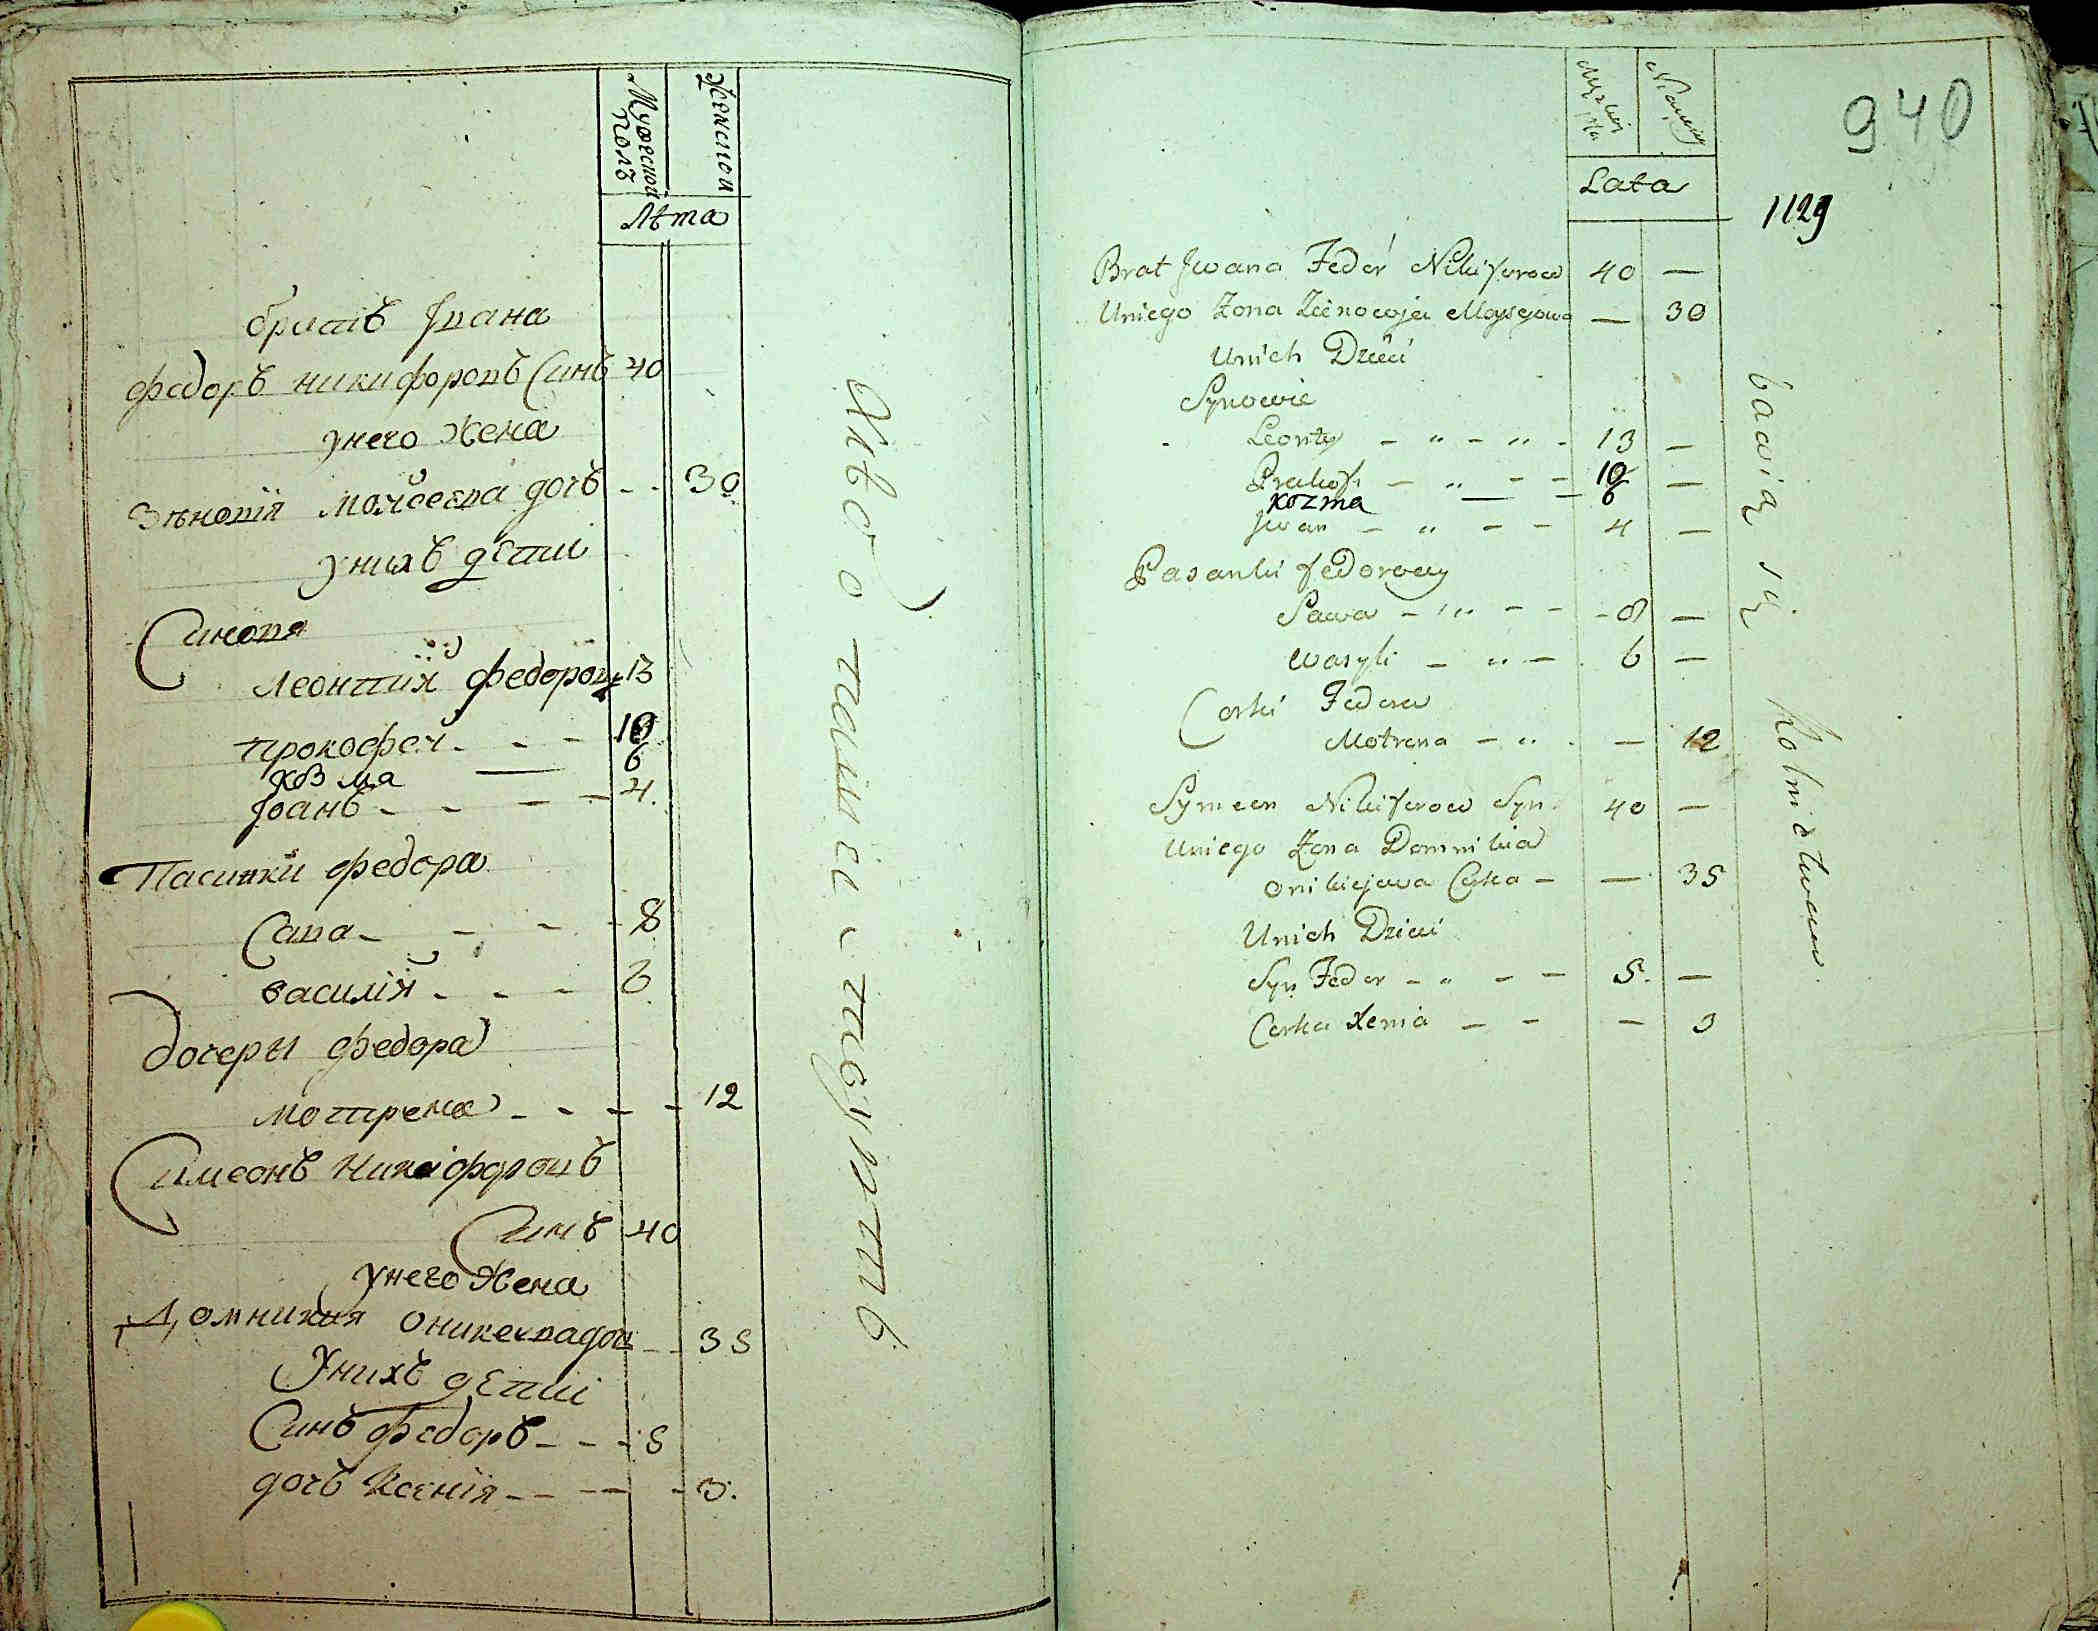 Мужеской полъ
Женской
Лѣта
братъ Іоана
Федоръ никифоровъ Синъ 40
унего Жена
Зѣновія мойсеева дочъ - - 30
унихъ дети
Синовя
Леонтий федоровъ 13
прокофей - - - 10
козма — 6
Іоанъ - - - - 4.
Пасинки федора
Сава - - - - 8
василій - - - 6
дочеры федора
мотрена - - - - 12
Симеонъ Никифоровъ
Синъ 40
унего Жена
Домникия оникеевадоч - - 35
Унихъ дети
Синъ федоръ - - - 5
дочъ Ксенія - - - - 3.
хлебопашествуютъ
940
Lata
1129
Brat Jwana Fedor Nikiforow 40 —
Uniego Żona Zienowija Moysejowa — 30
Unich Dzieci
Synowie
Leonty - „ - „ - 13 —
Prakofi - „ - - 10 —
Kozma — — 6
Jwan - „ - - 4 —
Pasanki Fedorowy
Sawa - „ - - - 8 —
Wasyli - „ - 6 —
Corki Fedora
Motrena - „ - — 12
Symeon Nikiforow Syn 40 —
Uniego Żona Domnikia
Onikiejowa Cyka - — 35
Unich Dzieci
Syn Fedor - „ - - 5. —
Corka Xenia - - — 3
bawią się Rolnictwem